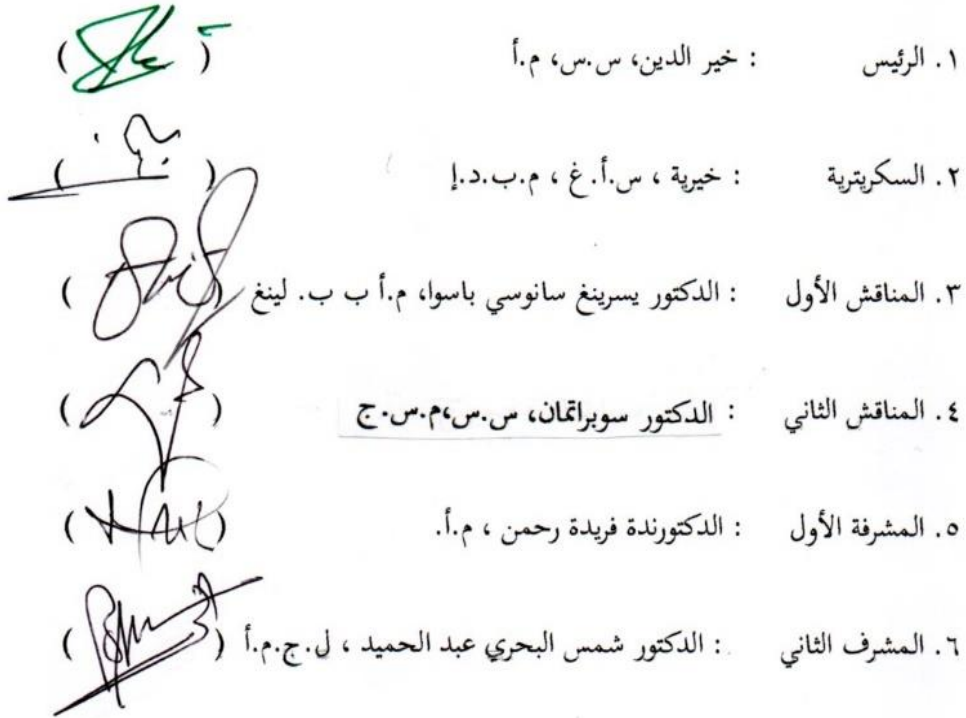 ١. الرئيس : خير الدين، س.س، م.أ ( )
٢. السكريترية : خيرية ، س.أ.غ ، م.ب.د.إ ( )
٣. المناقش الأول : الدكتور يسرينغ سانوسي باسوا، م.أ ب ب. لينغ ( )
٤. المناقش الثاني : الدكتور سوبراتمان، س.س،م.س.ج ( )
٥. المشرفة الأول : الدكتورندة فريدة رحمن ، م.أ. ( )
٦. المشرف الثاني : الدكتور شمس البحري عبد الحميد ، ل.ج.م.أ ( )